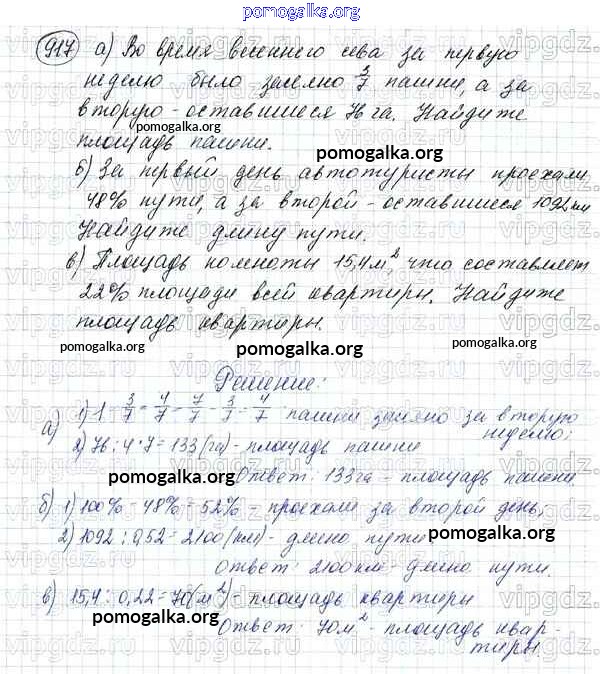 pomogalka.org
917 а) Во время весеннего сева за первую
неделю было засеяно 3/7 пашни, а за
вторую - оставшиеся 76 га. Найдите
pomogalka.org
площадь пашни.
pomogalka.org
б) За первый день автотуристы проехали
48% пути, а за второй - оставшиеся 1092 км
Найдите длину пути.
в) Площадь комнаты 15,4 м², что составляет
22% площади всей квартиры. Найдите
площадь квартиры.
pomogalka.org pomogalka.org pomogalka.org
Решение:
а) 1) 1 - 3/7 = 4/7 = 7/7 - 3/7 = 4/7 пашни засеяно за вторую
неделю;
2) 76 : 4 · 7 = 133 (га) - площадь пашни
Ответ: 133 га - площадь пашни
pomogalka.org
б) 1) 100% - 48% = 52% - проехали за второй день;
2) 1092 : 0,52 = 2100 (км) - длина пути
pomogalka.org
Ответ: 2100 км - длина пути.
в) 15,4 : 0,22 = 70 (м²) - площадь квартиры
pomogalka.org
Ответ: 70 м² - площадь квар-
тиры.
vipgdz.